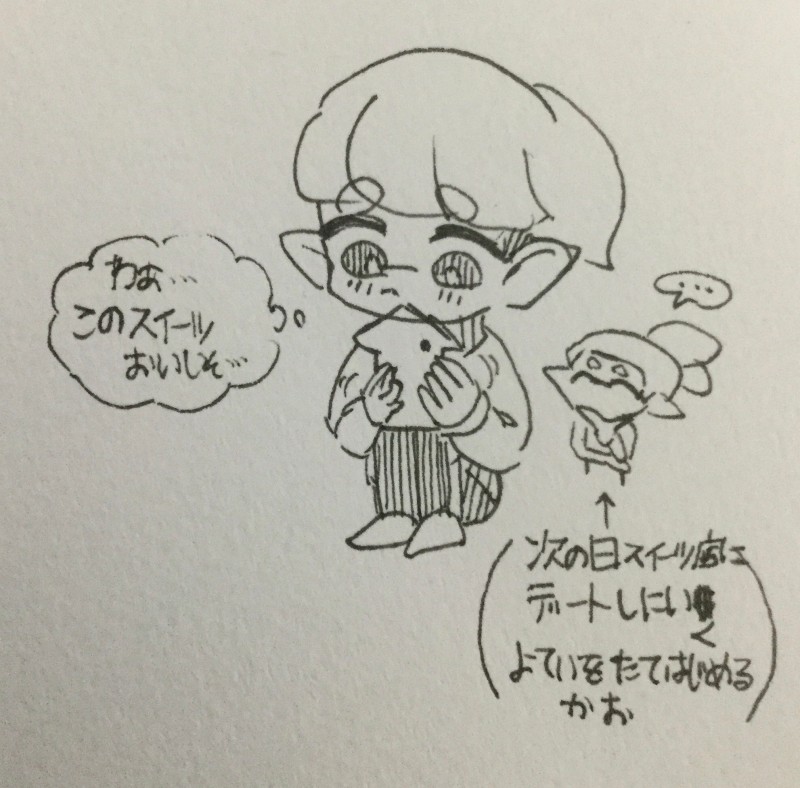 わぁ…
このスイーツ
おいしそ…
…
次の日スイーツ店に
デートしにいく
よていをたてはじめる
かお